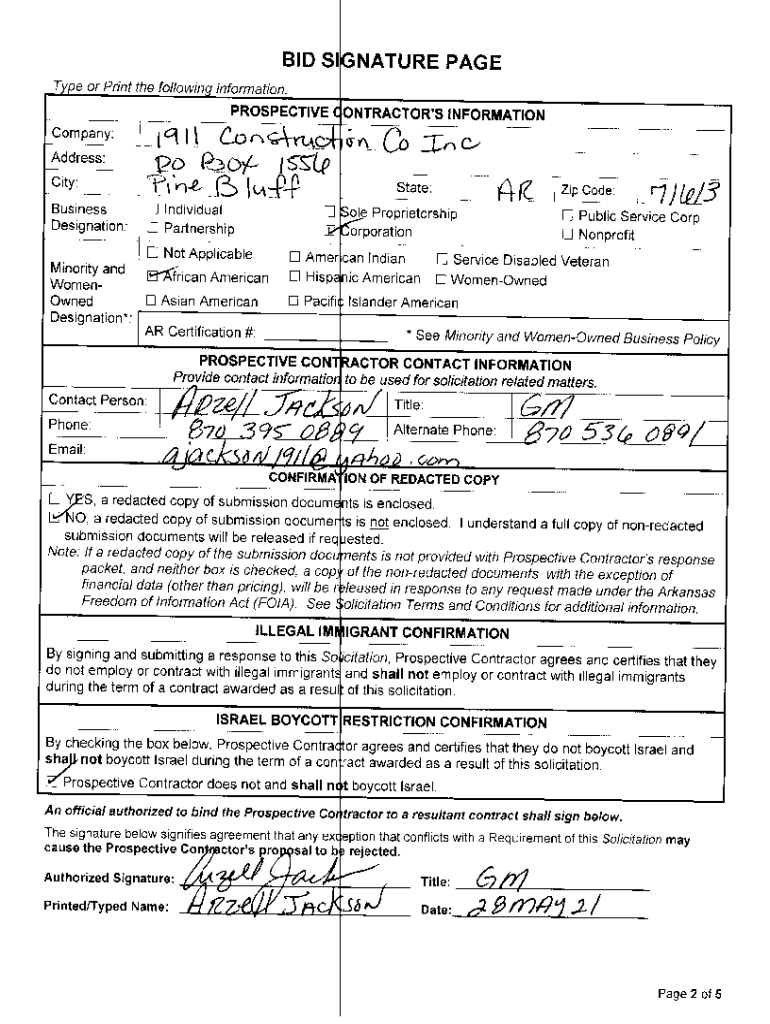 BID SIGNATURE PAGE
Type or Print the following information.
PROSPECTIVE CONTRACTOR'S INFORMATION
Company: 1911 Construction Co Inc
Address: PO Box 1556
City: Pine Bluff State: AR Zip Code: 71613
Business Designation: ☐ Individual ☐ Sole Proprietorship ☐ Public Service Corp
☐ Partnership ☑ Corporation ☐ Nonprofit
Minority and Women-Owned Designation*: ☐ Not Applicable ☐ American Indian ☐ Service Disabled Veteran
☑ African American ☐ Hispanic American ☐ Women-Owned
☐ Asian American ☐ Pacific Islander American
AR Certification #: * See Minority and Women-Owned Business Policy
PROSPECTIVE CONTRACTOR CONTACT INFORMATION
Provide contact information to be used for solicitation related matters.
Contact Person: Arzell Jackson Title: GM
Phone: 870 395 0889 Alternate Phone: 870 536 0891
Email: ajackson1911@yahoo.com
CONFIRMATION OF REDACTED COPY
☐ YES, a redacted copy of submission documents is enclosed.
☑ NO, a redacted copy of submission documents is not enclosed. I understand a full copy of non-redacted
submission documents will be released if requested.
Note: If a redacted copy of the submission documents is not provided with Prospective Contractor's response
packet, and neither box is checked, a copy of the non-redacted documents with the exception of
financial data (other than pricing), will be released in response to any request made under the Arkansas
Freedom of Information Act (FOIA). See Solicitation Terms and Conditions for additional information.
ILLEGAL IMMIGRANT CONFIRMATION
By signing and submitting a response to this Solicitation, Prospective Contractor agrees and certifies that they
do not employ or contract with illegal immigrants and shall not employ or contract with illegal immigrants
during the term of a contract awarded as a result of this solicitation.
ISRAEL BOYCOTT RESTRICTION CONFIRMATION
By checking the box below, Prospective Contractor agrees and certifies that they do not boycott Israel and
shall not boycott Israel during the term of a contract awarded as a result of this solicitation.
☑ Prospective Contractor does not and shall not boycott Israel.
An official authorized to bind the Prospective Contractor to a resultant contract shall sign below.
The signature below signifies agreement that any exception that conflicts with a Requirement of this Solicitation may
cause the Prospective Contractor's proposal to be rejected.
Authorized Signature: Arzell Jack Title: GM
Printed/Typed Name: Arzell Jackson Date: 28 MAY 21
Page 2 of 5